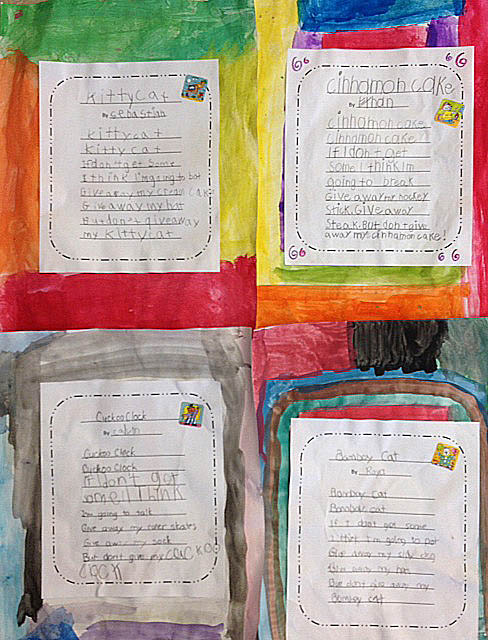 Kittycat
By sebastian
kittycat
Kittycat
If don't get some
I think I'm going to bot
Give away my cream cake
Give away my hat
But don't give away
my Kittycat
cinnamon cake
By Ethan
cinnamon cake
Cinnamon cake
If I don't get
some I think Im
going to break
Give away my hockey
Stick. Give away
Steak. But don't give
away my cinnamon cake!
Cuckoo Clock
By
Cuckoo Clock
Cuckoo Clock
If I don't get
some I think
Im going to talk
Give away my roller skates
Give away my sock
But don't give my CUCKOO
COCK
Bombay Cat
By Raya
Bombay cat
Bombay cat
If I dont get some
I think I'm going to pat
Give away my
Give away my
But dont give away my
Bombay cat